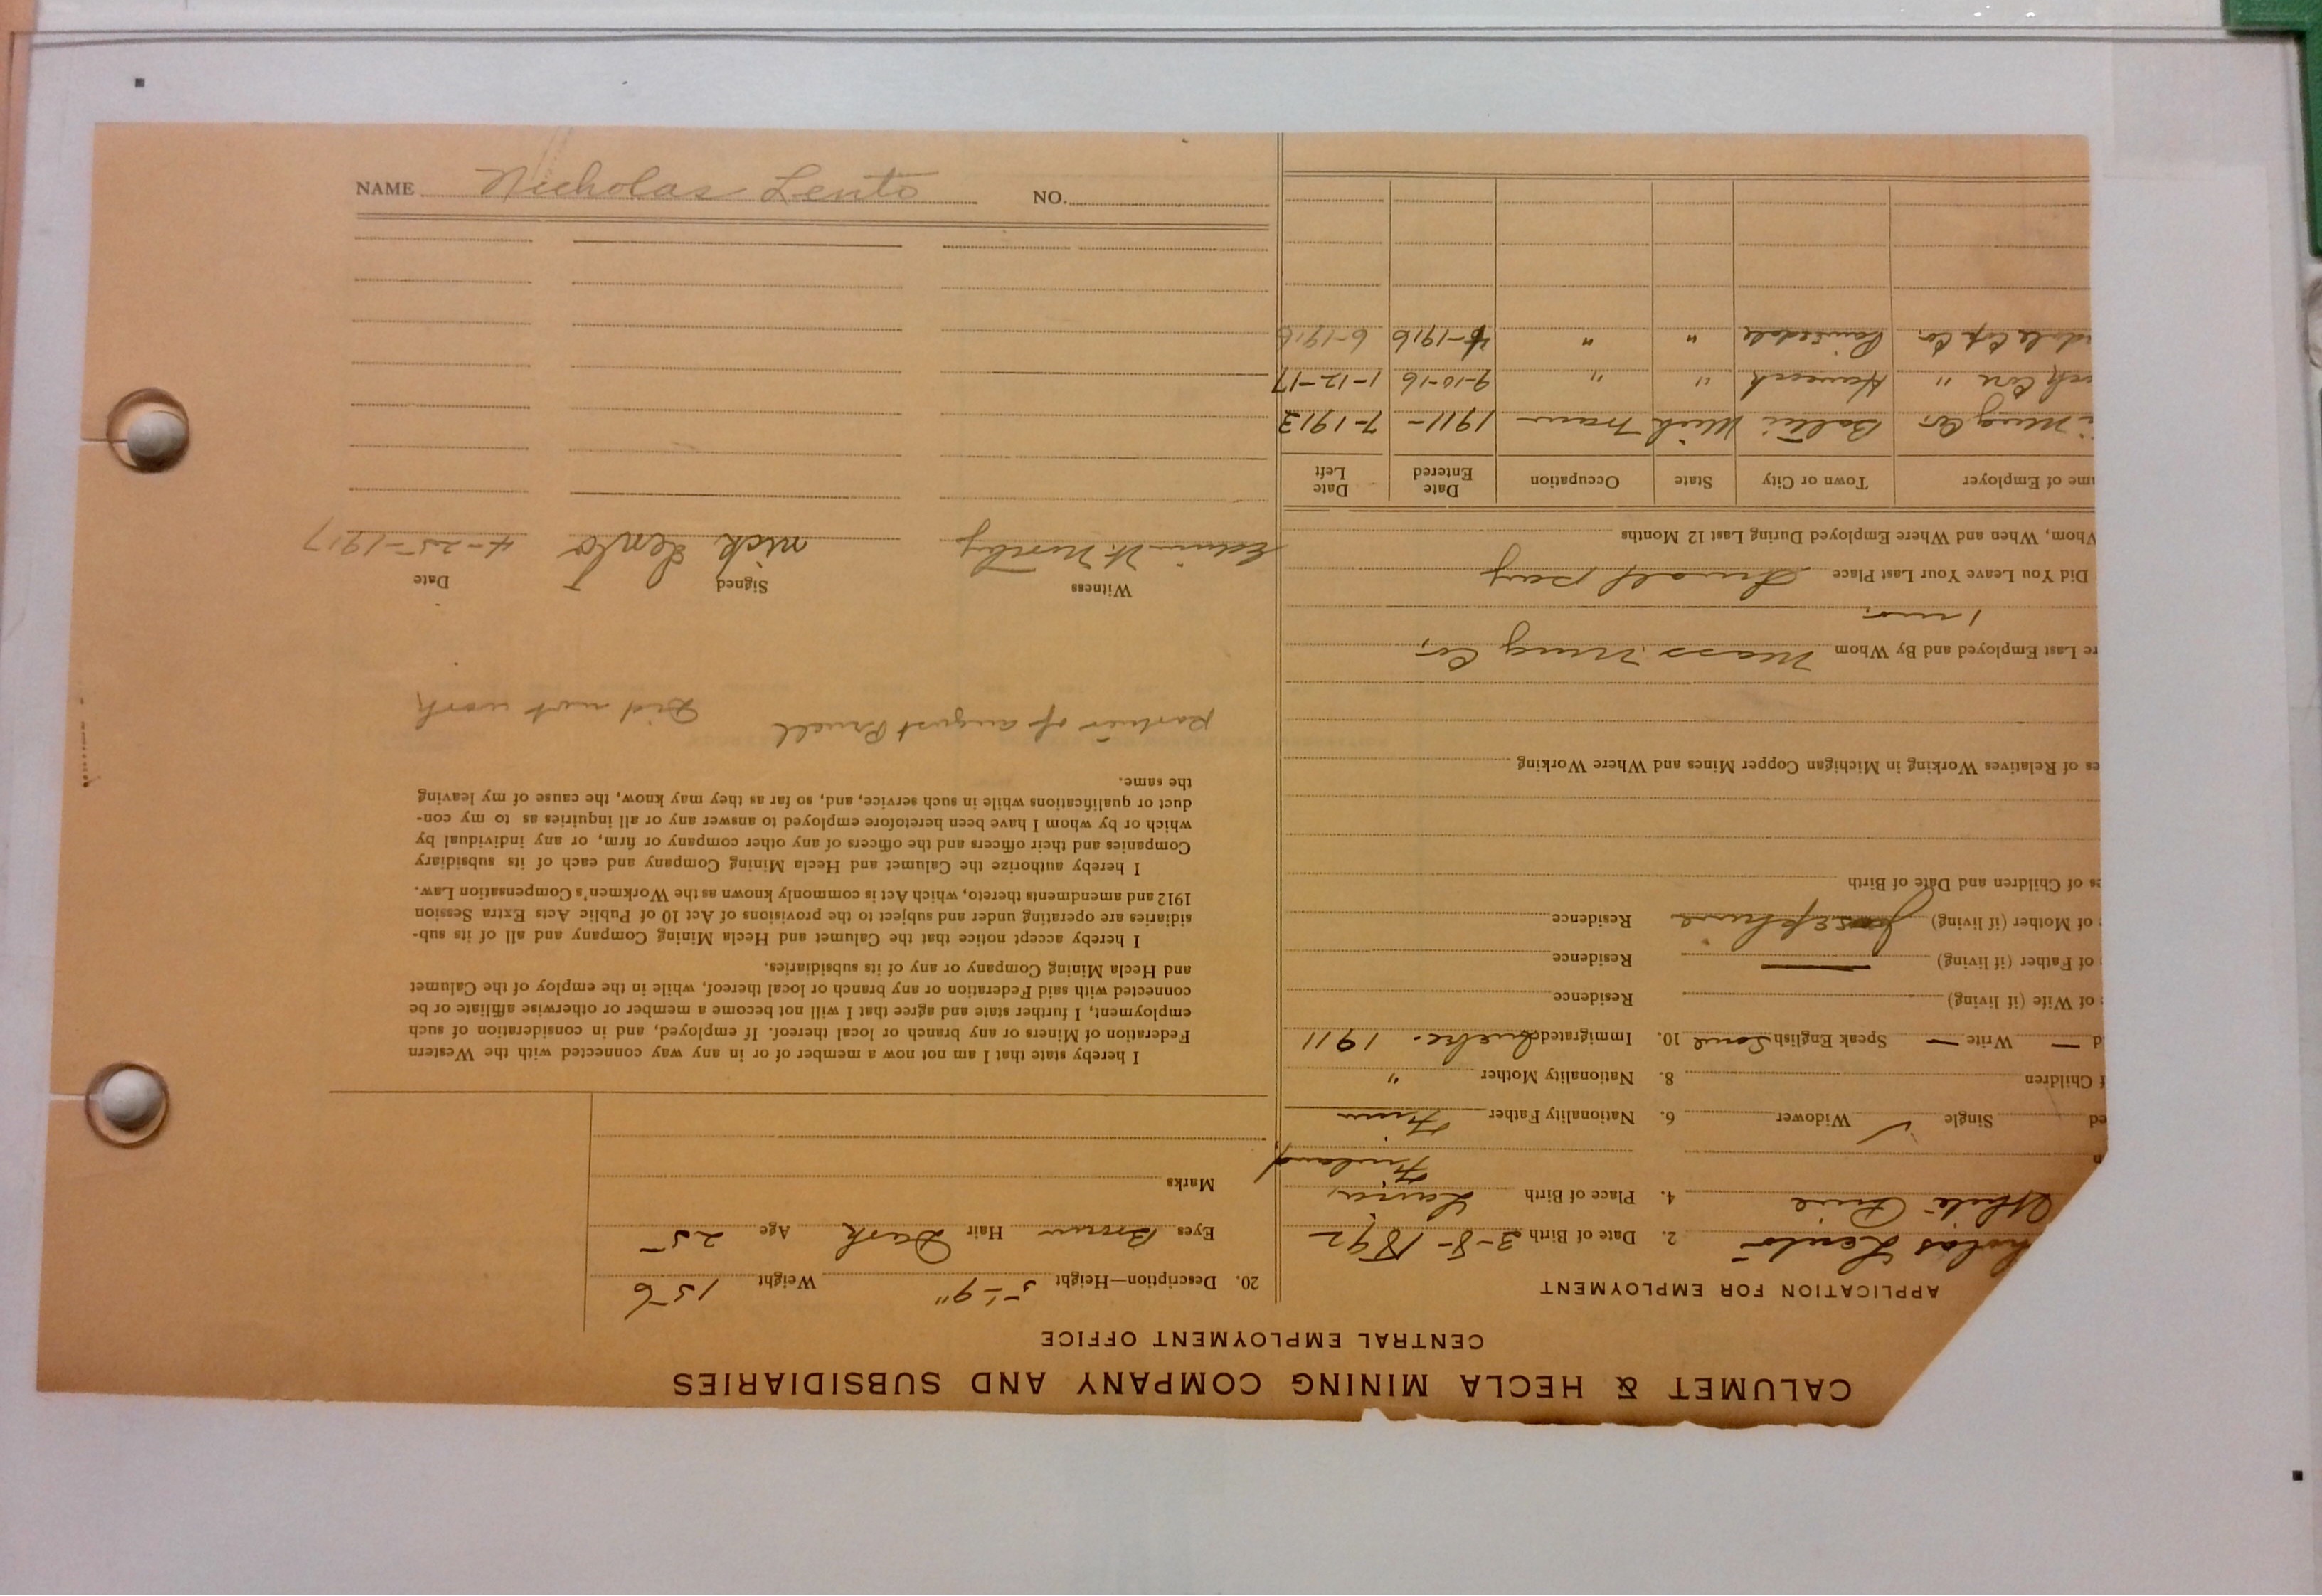 CALUMET & HECLA MINING COMPANY AND SUBSIDIARIES
CENTRAL EMPLOYMENT OFFICE
APPLICATION FOR EMPLOYMENT
holas Lento 2. Date of Birth 3-8-1892
White Pine 4. Place of Birth
Finland
ed Single Widower ✓ 6. Nationality Father Finn
f Children 8. Nationality Mother "
d — Write — Speak English Some 10. Immigrated 1911
of Wife (if living) Residence
of Father (if living) — Residence
of Mother (if living) Josephine Residence
es of Children and Date of Birth
es of Relatives Working in Michigan Copper Mines and Where Working
re Last Employed and By Whom Mass Mng Co,
1 mo.
Did You Leave Your Last Place Small pay
Whom, When and Where Employed During Last 12 Months
me of Employer Town or City State Occupation Date Entered Date Left
Mng Co. Baltic Mich Tram 1911- 7-1913
Con " Hancock " " 9-10-16 1-12-17
dale Cop Co. Painesdale " " -1916 6-1916
20. Description—Height 5'-9" Weight 156
Eyes Brown Hair Dark Age 25
Marks
I hereby state that I am not now a member of or in any way connected with the Western
Federation of Miners or any branch or local thereof. If employed, and in consideration of such
employment, I further state and agree that I will not become a member or otherwise affiliate or be
connected with said Federation or any branch or local thereof, while in the employ of the Calumet
and Hecla Mining Company or any of its subsidiaries.
I hereby accept notice that the Calumet and Hecla Mining Company and all of its sub-
sidiaries are operating under and subject to the provisions of Act 10 of Public Acts Extra Session
1912 and amendments thereto, which Act is commonly known as the Workmen's Compensation Law.
I hereby authorize the Calumet and Hecla Mining Company and each of its subsidiary
Companies and their officers and the officers of any other company or firm, or any individual by
which or by whom I have been heretofore employed to answer any or all inquiries as to my con-
duct or qualifications while in such service, and, so far as they may know, the cause of my leaving
the same.
Partner of August Did not work
Witness Signed Date
Edwin W. nick Lento 4-25-1917
NAME Nicholas Lento NO.